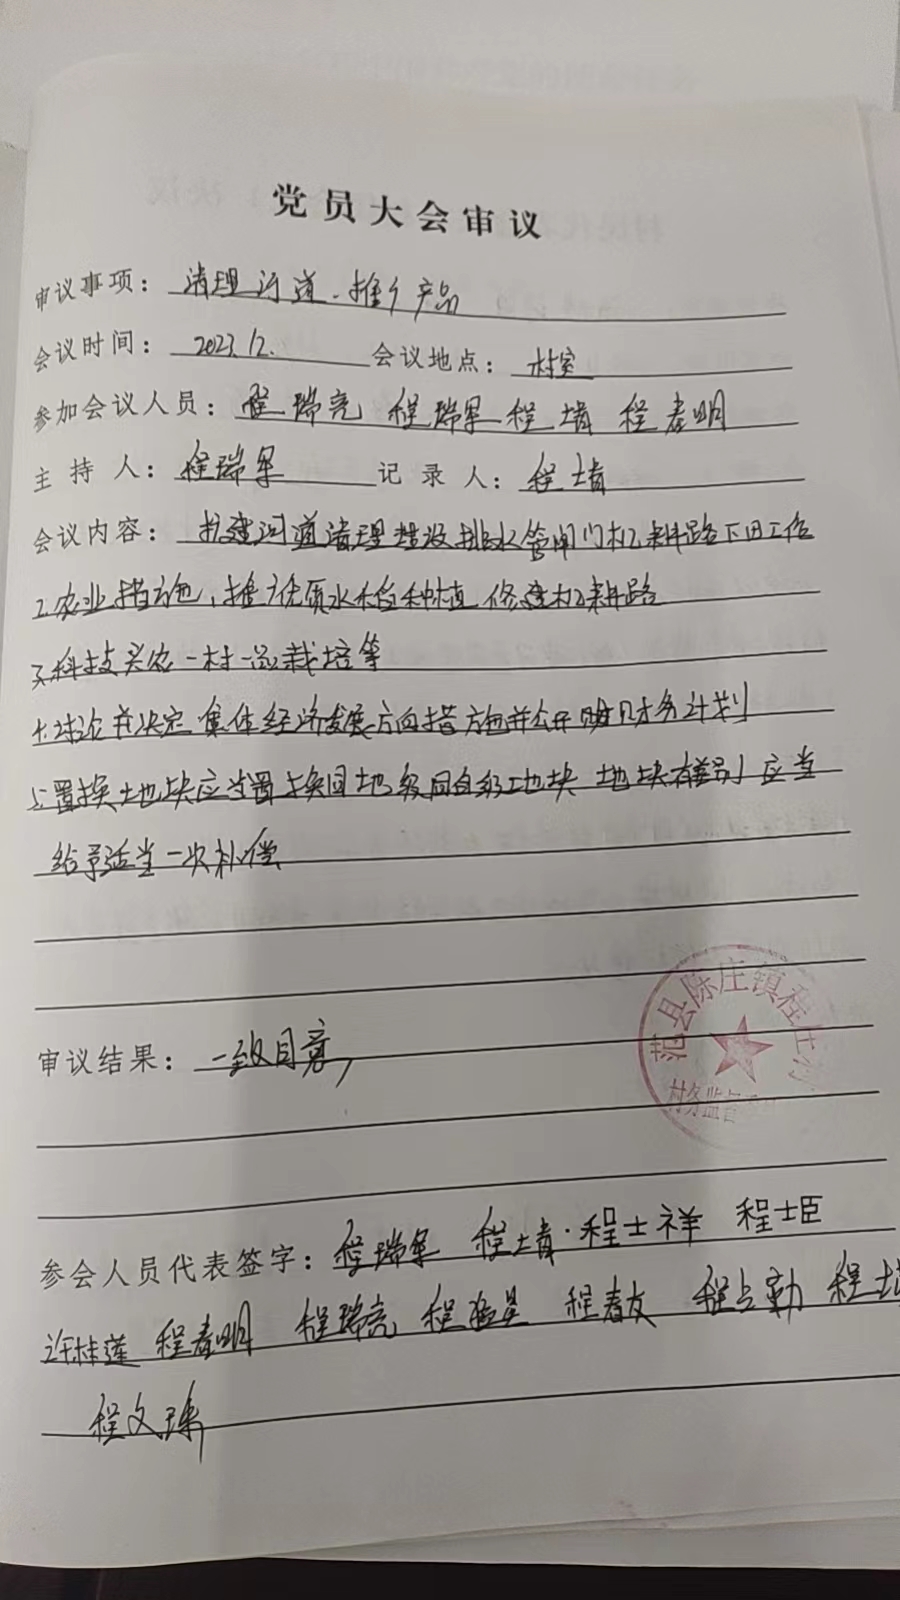 党员大会审议
审议事项：清理河道、推广产品
会议时间：2023.12. 会议地点：村室
参加会议人员：程瑞亮 程瑞军 程靖 程春明
主持人：程瑞军 记录人：程靖
会议内容：扩建河道清理建设排水管闸门机耕路下田工作
2.农业措施，推广优质水稻种植 修建机耕路
3.科技兴农一村一品栽培等
4.讨论并决定集体经济发展方向措施并公开财务计划
5.置换土地块应当置换同地级同自然地块 地块有差别应当
给予适当一次补偿
审议结果：一致同意
范县陈庄镇程庄村
村务监督
参会人员代表签字：程瑞军 程靖 程士祥 程士臣
许桂莲 程春明 程瑞亮 程 程春友 程占勤 程
程文